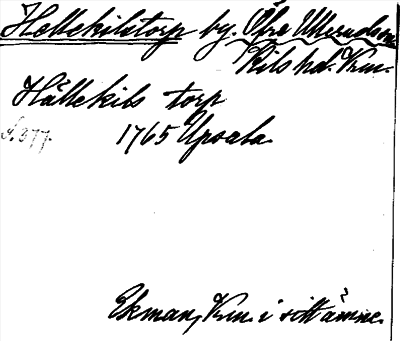 Hellekilstorp by. Övre Ullerudsn.
Kils hd. Vrm.
Hällekils torp
S. 377. 1765 Upsala.
Ekman, Vrm. i sitt ämne.